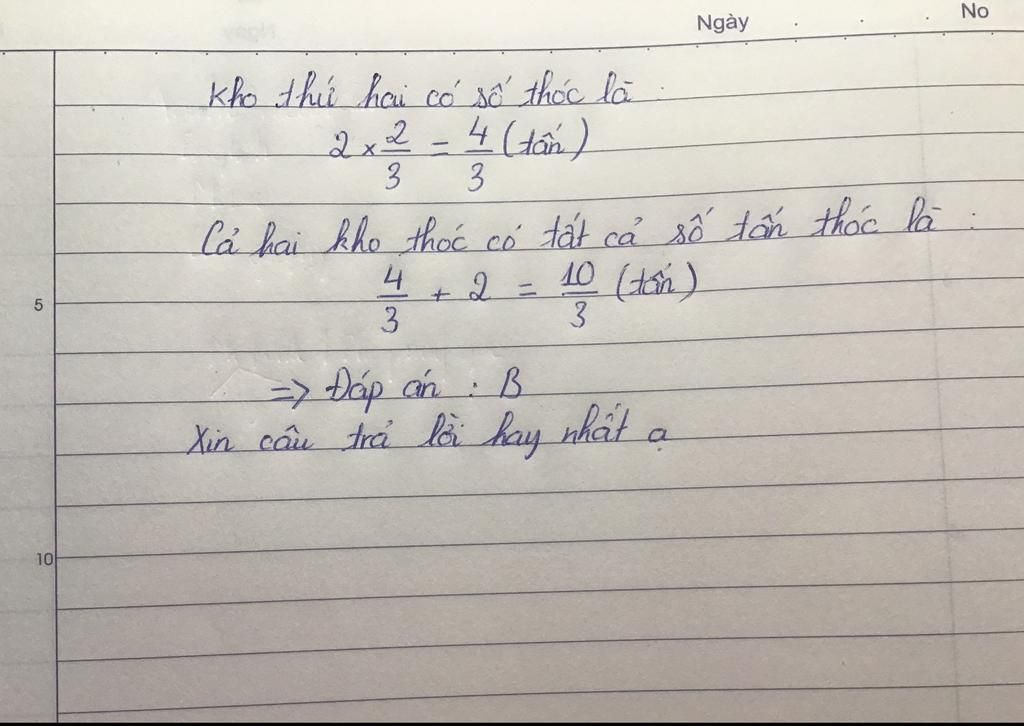 Ngày . . . No
Kho thứ hai có số thóc là :
2 × 2/3 = 4/3 (tấn)
Cả hai kho thóc có tất cả số tấn thóc là :
4/3 + 2 = 10/3 (tấn)
5
=> Đáp án : B
Xin câu trả lời hay nhất ạ
10